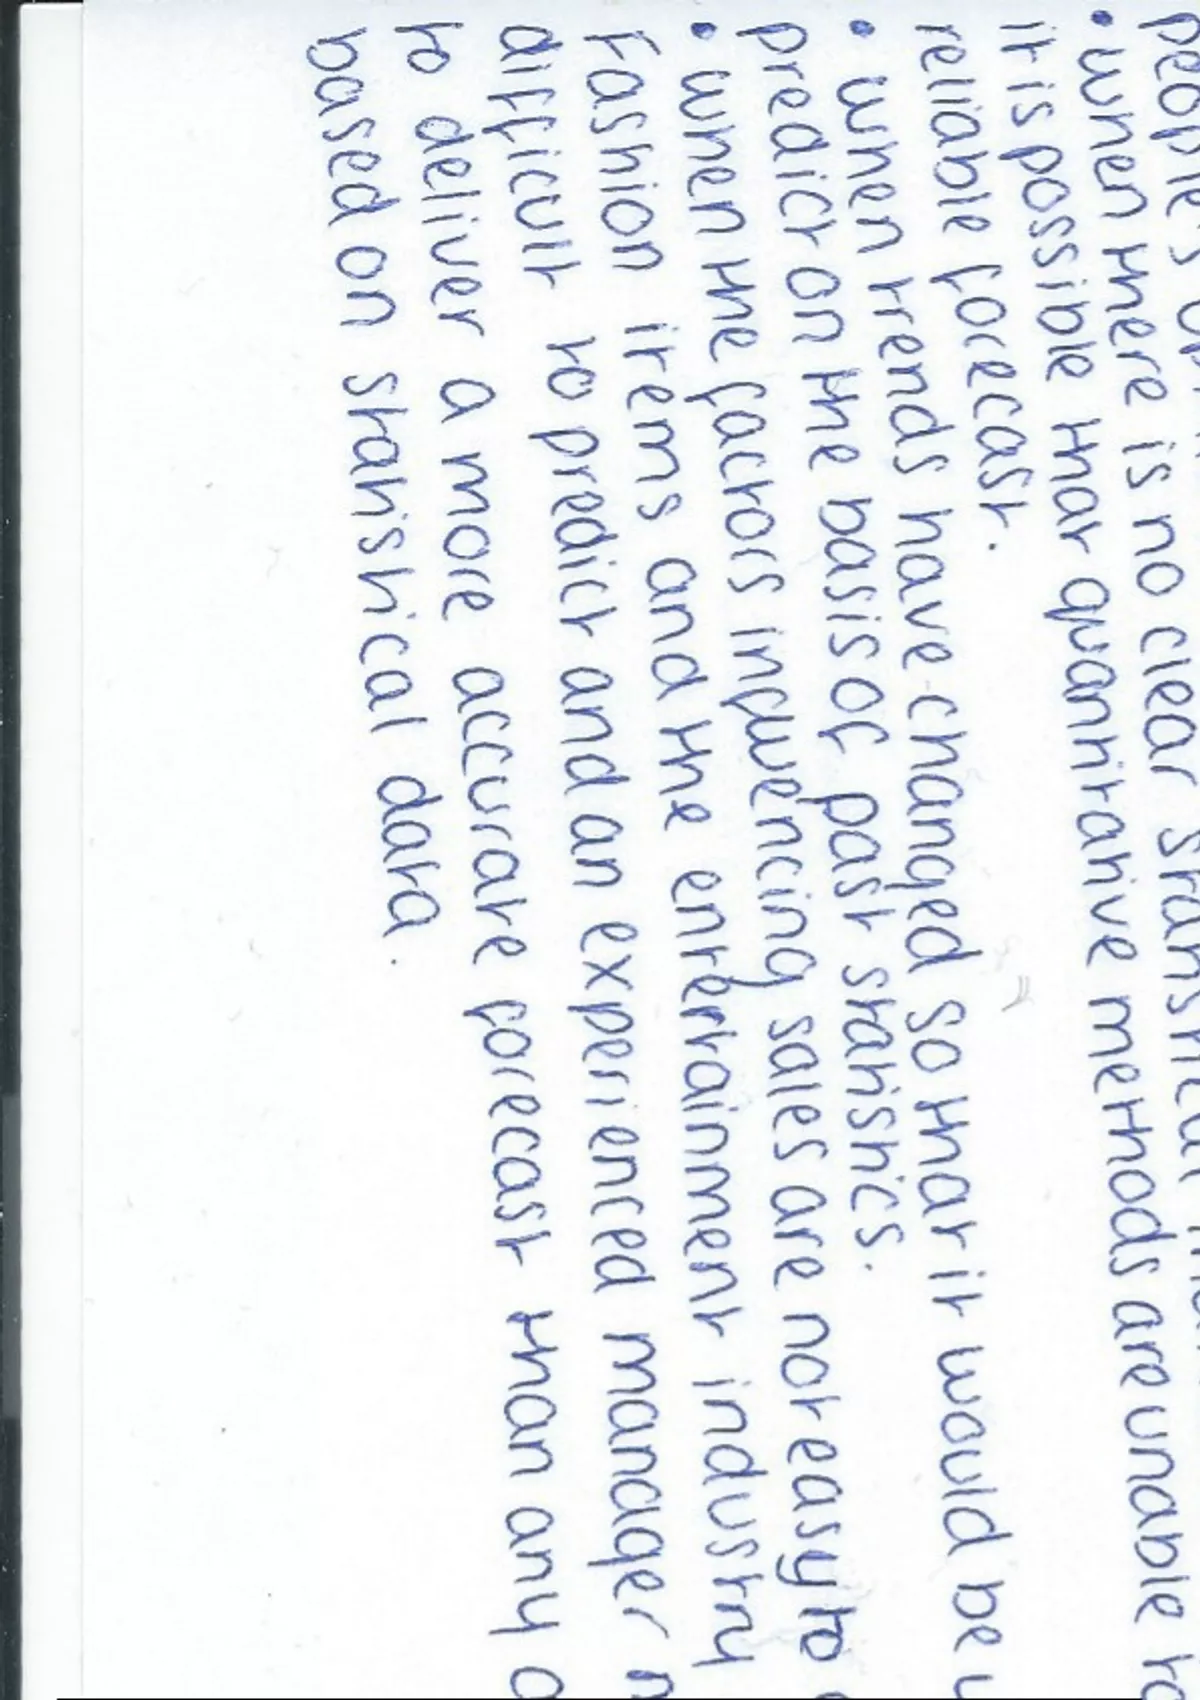 people's
• when there is no clear
it is possible that quantitative methods are unable to
reliable forecast.
• when trends have changed so that it would be
predict on the basis of past statistics.
• when the factors influencing sales are not easy to
Fashion items and the entertainment industry
difficult to predict and an experienced manager
to deliver a more accurate forecast than any
based on statistical data.